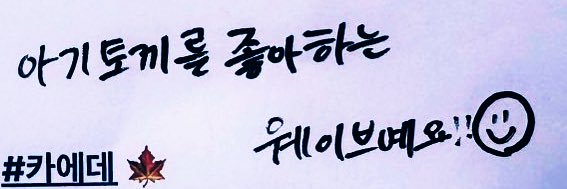 아기토끼를 좋아하는
웨이브예요!!
#카에데 🍁